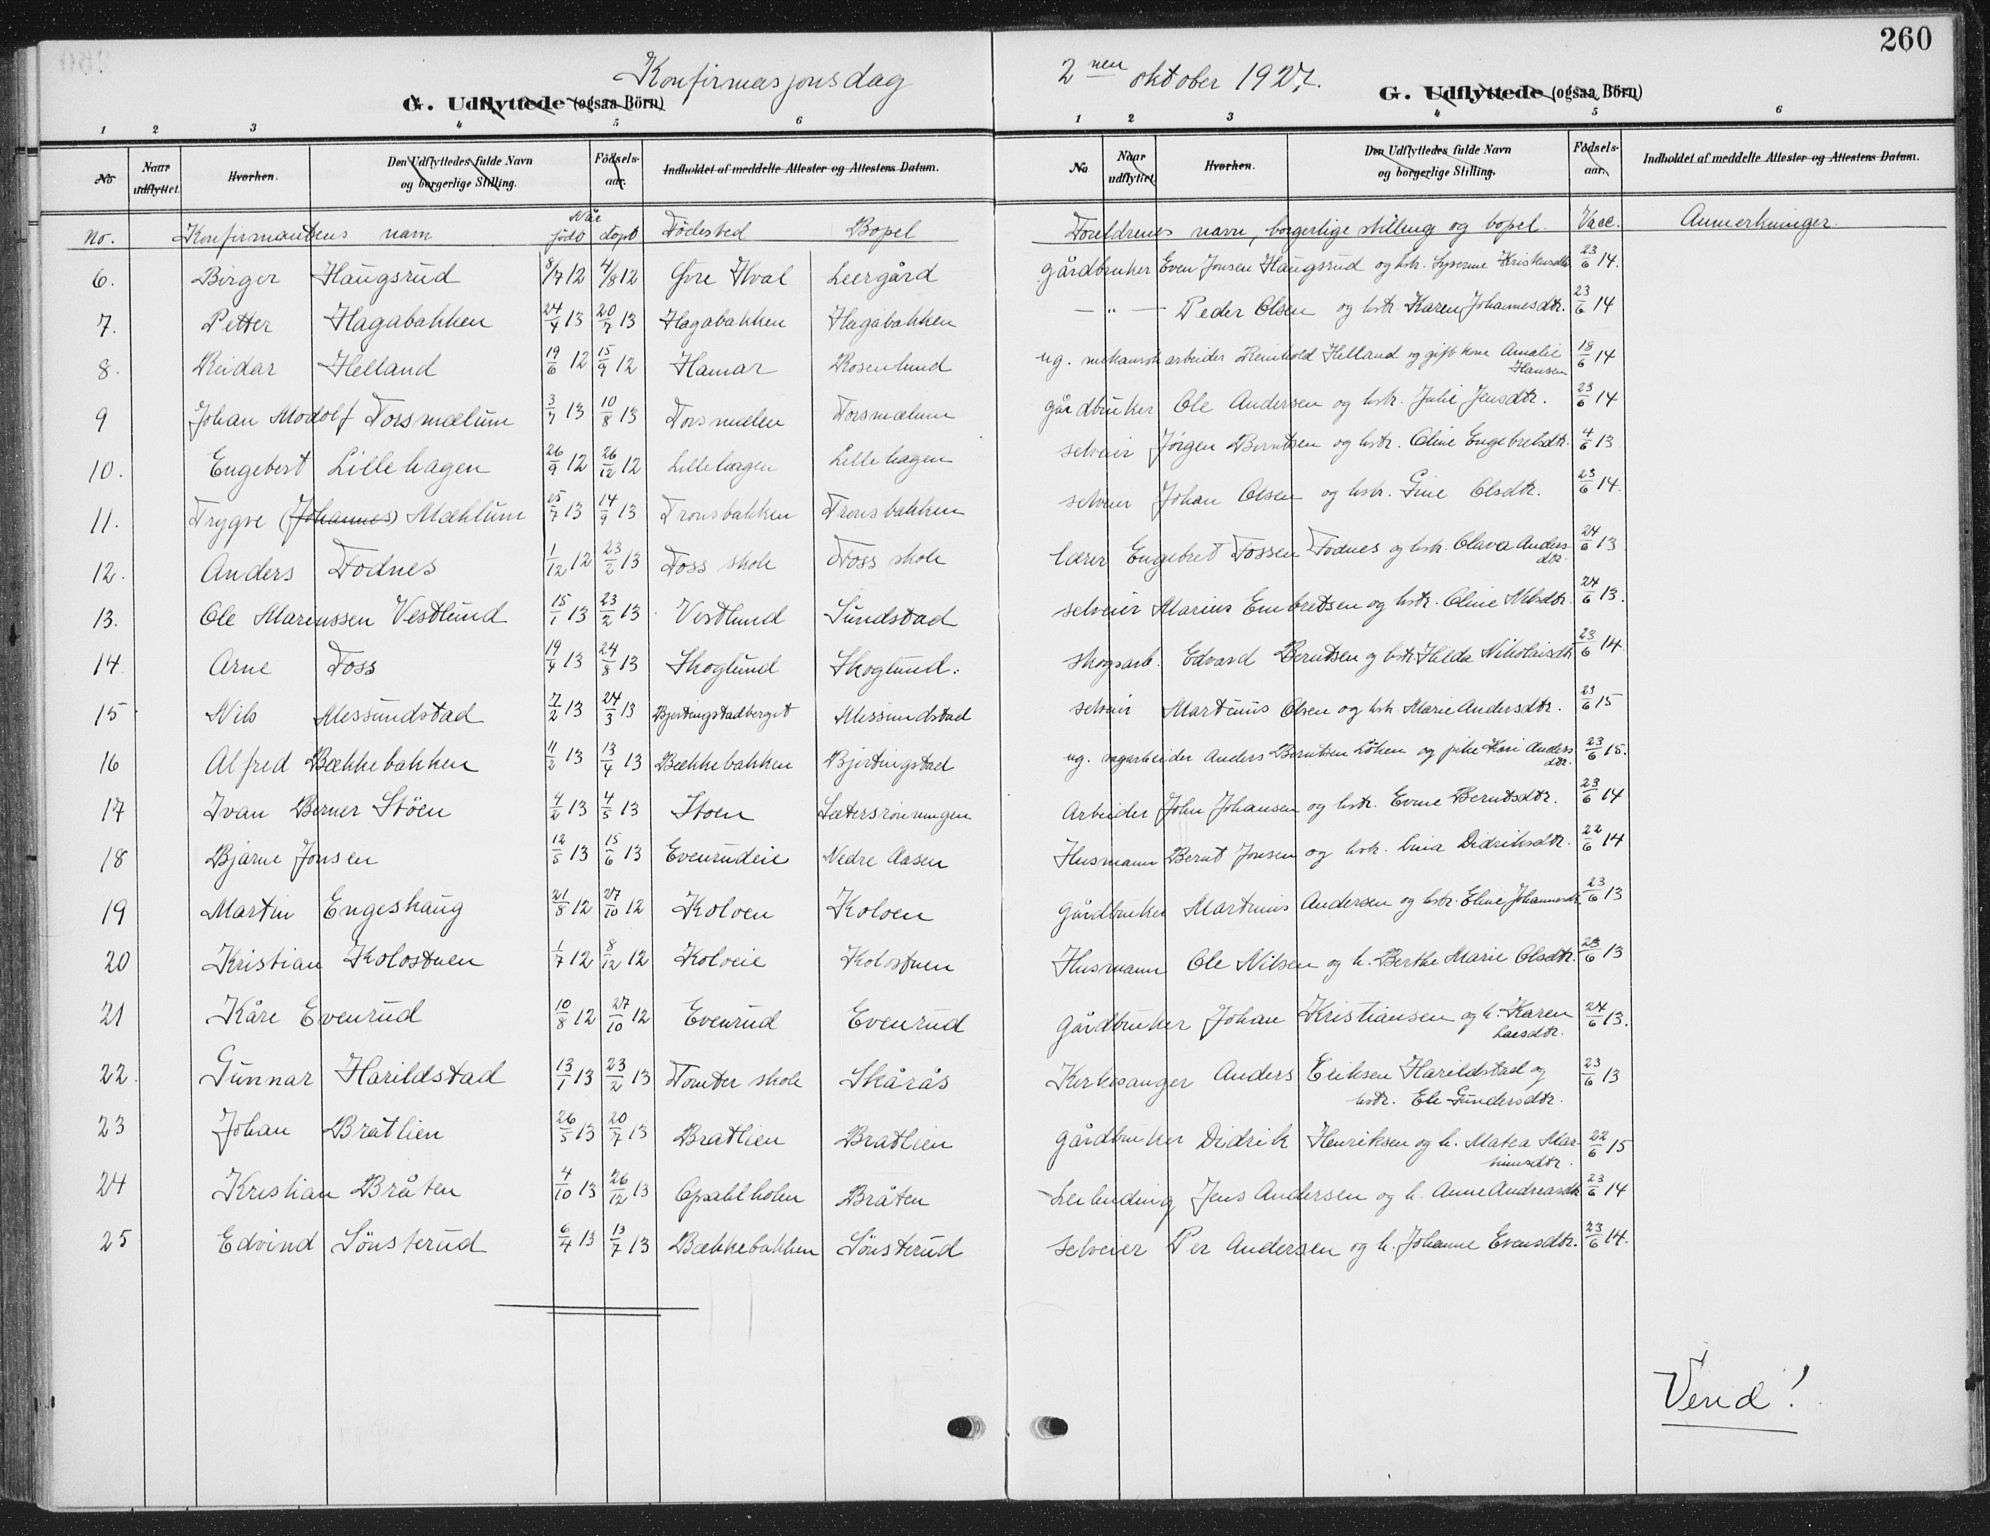 260
Konfirmasjonsdag 2nen oktober 1927.
G. Udflyttede (ogsaa Börn) G. Udflyttede (ogsaa Börn)
1 2 3 4 5 6 1 2 3 4 5 6
No Naar udflyttet. Hvorhen. Den Udflyttedes fulde Navn og borgerlige Stilling. Fødselsaar. Indholdet af meddelte Attester og Attestens Datum. No Naar udflyttet. Hvorhen. Den Udflyttedes fulde Navn og borgerlige Stilling. Fødselsaar. Indholdet af meddelte Attester og Attestens Datum.
No. Konfirmantens navn Når født døpt Fødested Bopel Foreldrenes navn, borgerlige stilling og bopel. Vacc. Anmerkninger.
6. Birger Haugsrud 8/7 12 4/8 12 Øvre Hval Leergård gårdbruker Even Jonsen Haugsrud og hstr. Kristensdtr. 23/6 14.
7. Petter Hagabakken 24/4 13 20/7 13 Hagabakken Hagabakken — " — Peder Olsen og hstr. Karen Johannesdtr. 23/6 14
8. Reidar Helland 19/6 12 15/9 12 Hamar Rosenlund ug. mekanisk arbeider Reinhold Helland og gift kone Amalie Hansen 18/6 14
9 Johan Modolf Torsmælum 3/7 13 10/8 13 Torsmælen Torsmælum gårdbruker Ole Andersen og hstr. Julie Jensdtr. 23/6 14
10. Engebert Lillehagen 26/9 12 26/12 12 Lillehagen Lillehagen selveier Jørgen Berntsen og hstr. Oline Engebretsdtr. 4/6 13
11. Trygve (Johannes) Mæhlum 25/7 13 14/9 13 Tronsbakken Tronsbakken selveier Johan Olsen og hstr. Gine Olsdtr. 23/6 14.
12. Anders Fodnes 1/12 12 23/2 13 Foss skole Foss skole lærer Engebret Fossen Fodnes og hstr. Olava Andersdtr. 24/6 13
13. Ole Mariussen Vestlund 15/1 13 23/2 13 Vestlund Sundstad selveier Marius Embretsen og hstr. Oline Nilsdtr. 24/6 13.
14 Arne Foss 19/4 13 24/8 13 Skoglund Skoglund. skogsarb. Edvard Berntsen og hstr. Hilda Nikolaisdtr 23/6 14.
15 Nils Messundstad 7/2 13 24/3 13 Bjertingstadberget Messundstad selveier Martinus Olsen og hstr. Marie Andersdtr. 23/6 15
16 Alfred Bækkebakken 11/2 13 13/4 13 Bækkebakken Bjertingstad ug. sagarbeider Anders Berntsen Løken og pike Kari Andersdtr. 23/6 15.
17 Ivan Berner Støen 4/2 13 4/5 13 Støen Sætersrønningen Arbeider John Johansen og hstr. Evine Berntsdtr. 23/6 14
18 Bjarne Jonsen 12/5 13 15/6 13 Evenrudeie Nedre Aasen Husmann Bernt Jonsen og hstr. Lina Didriksdtr. 22/6 14
19 Martin Engeshaug 21/8 12 27/10 12 Koloen Koloen gårdbruker Martinus Andersen og hstr. Eline Johannesdtr. 23/6 13
20 Kristian Kolostuen 1/7 12 8/12 12 Kolveie Kolstuen Husmann Ole Nilsen og h. Berthe Marie Olsdtr. 23/6 13
21 Kåre Evenrud 10/8 12 27/10 12 Evenrud Evenrud gårdbruker Johan Kristiansen og h. Karen Larsdtr. 24/6 13.
22. Gunnar Harildstad 13/1 13 23/2 13 Tomter skole Skårås Kirkesanger Anders Eriksen Harildstad og hstr. Ele Gundersdtr. 23/6 13
23 Johan Bratlien 26/5 13 20/7 13 Bratlien Bratlien gårdbruker Didrik Henriksen og h. Matea Martinusdtr. 22/6 15
24 Kristian Bråten 4/10 13 26/12 13 Opsahlholm Bråten Leilending Jens Andersen og h. Anne Andreasdtr 23/6 14
25 Edvind Sønsterud 6/4 13 13/7 13 Bækkebakken Sønsterud selveier Per Andersen og h. Johanne Evensdtr. 23/6 14.
Vend!